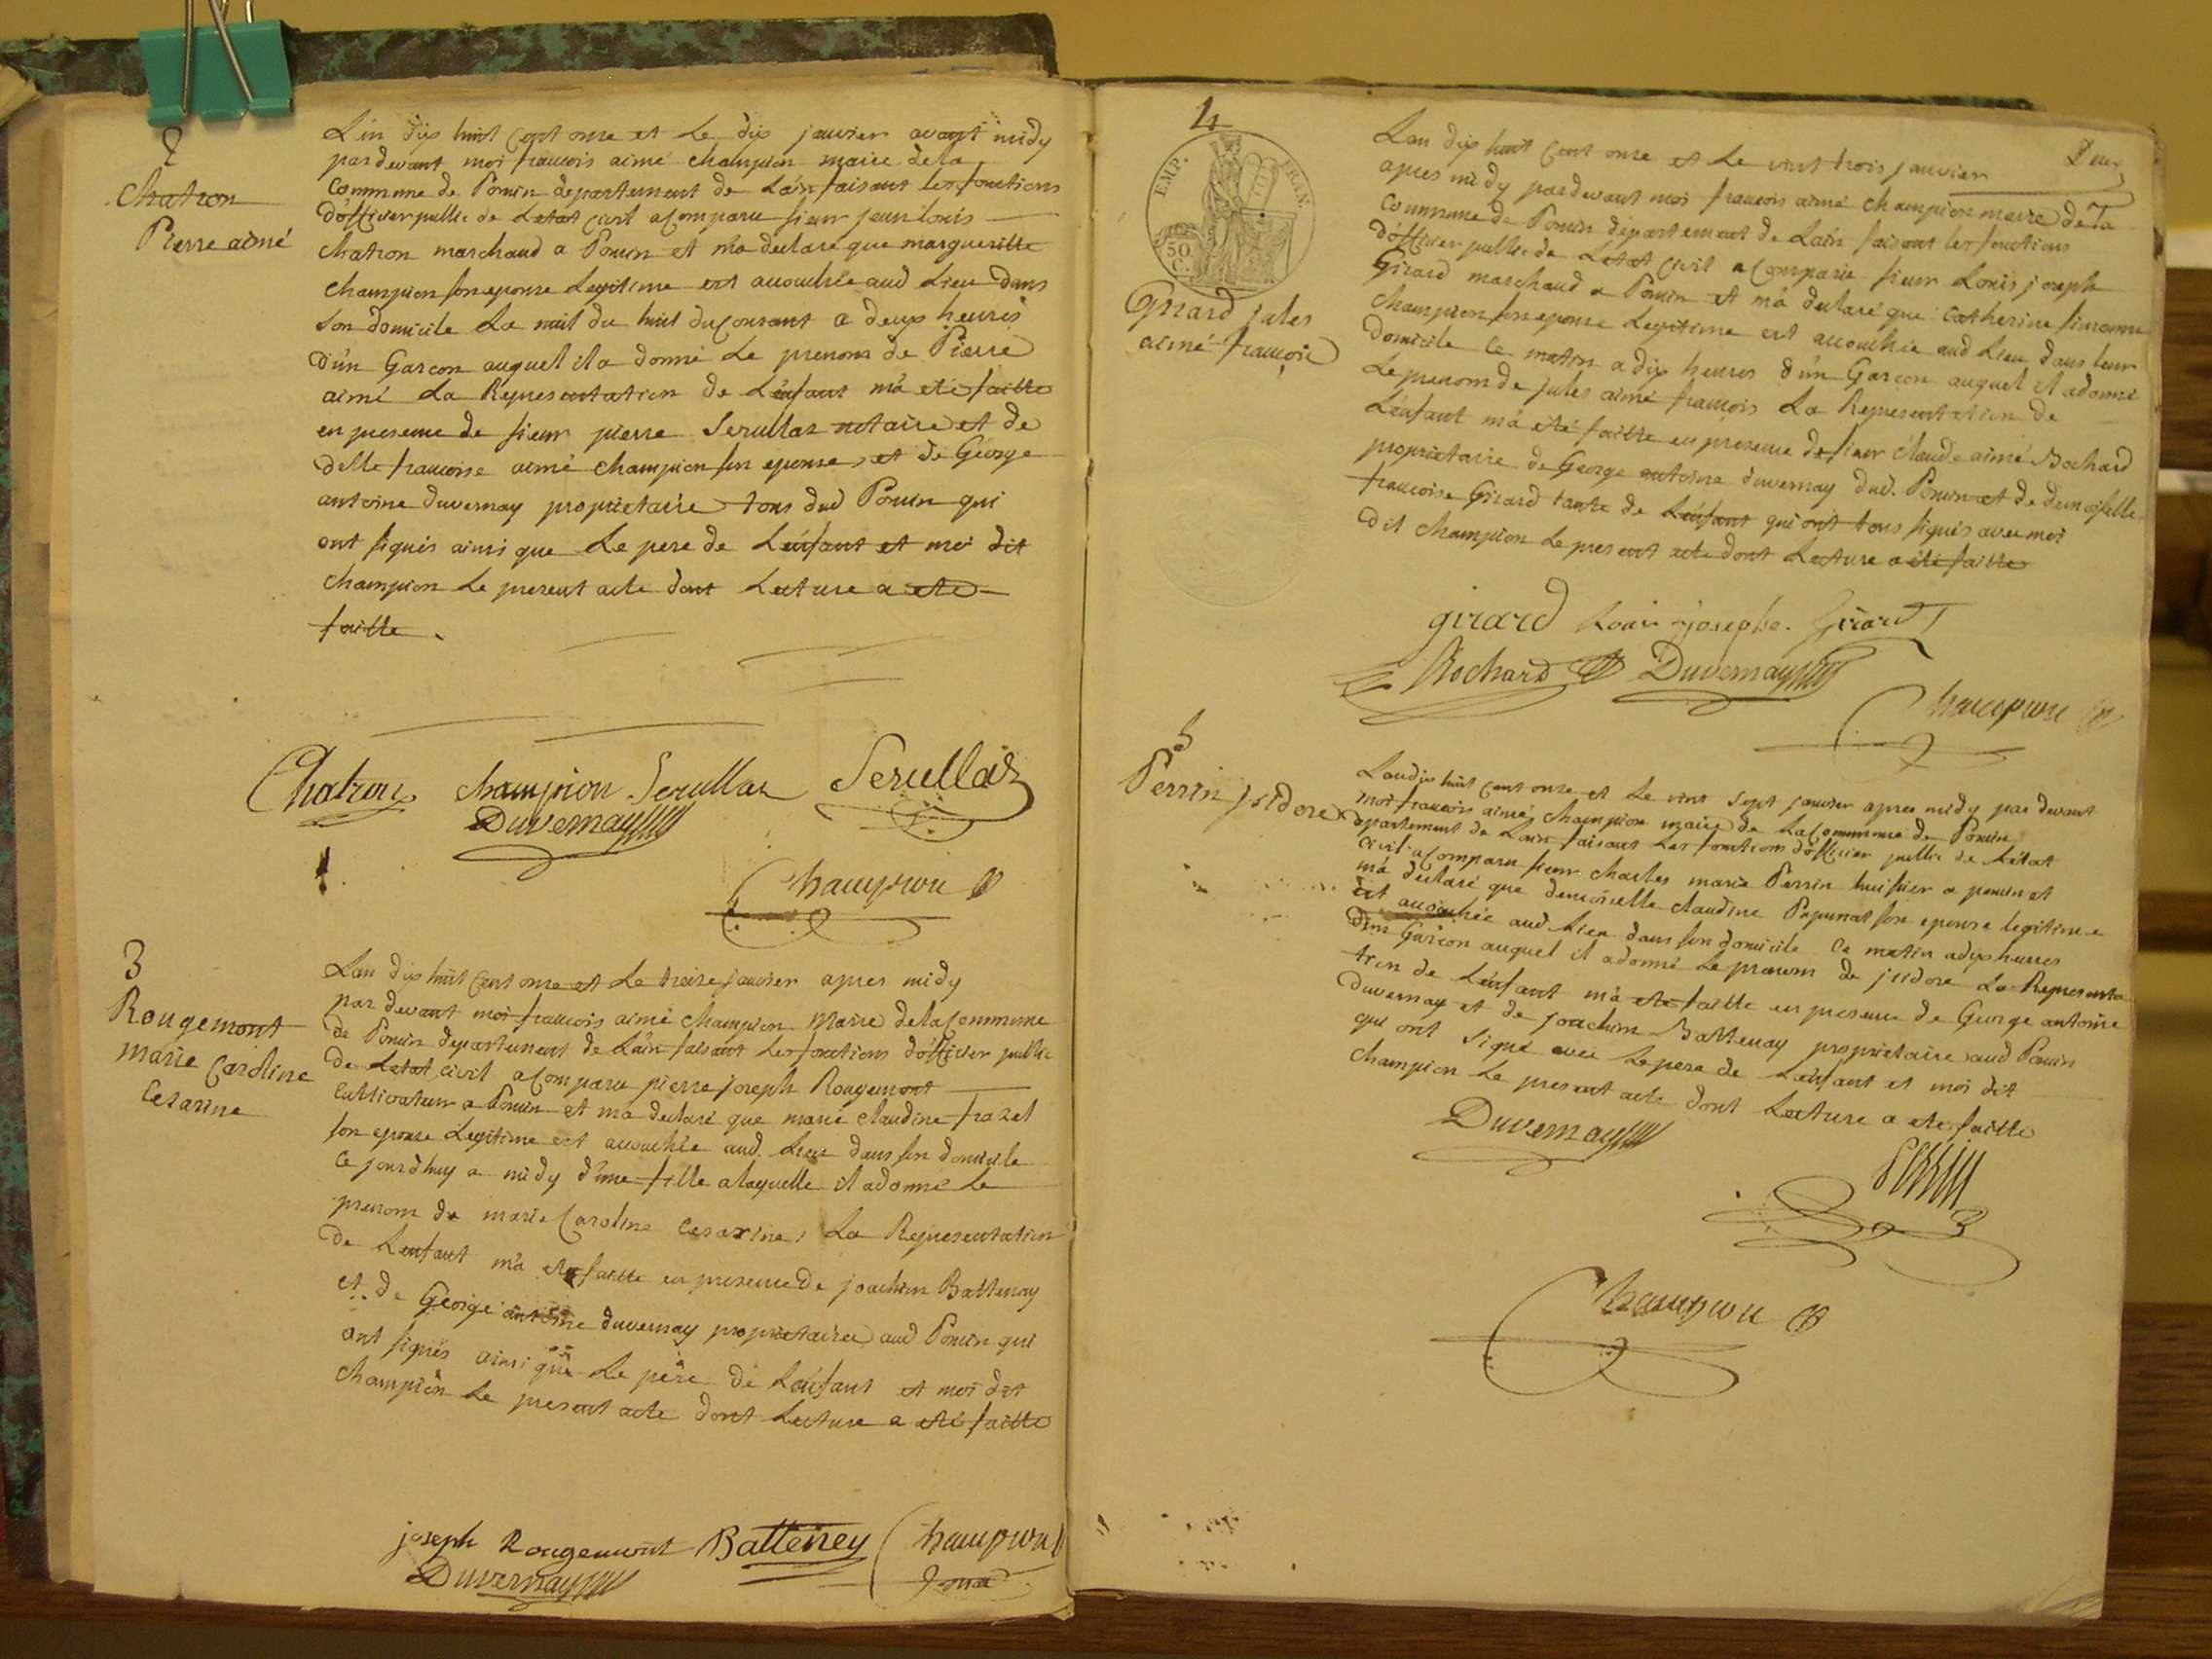 2
Chatron
Pierre aimé
L'an dix huit cent onze et le dix janvier avant midy
pardevant moi francois aimé champion maire de la
commune de Poncin departement de L'ain faisant les fonctions
d'officier public de L'etat civil a comparu sieur jean louis
chatron marchand a Poncin et m'a declaré que margueritte
champion son epouse Legitime est accouchée aud Lieu dans
son domicile La nuit du huit du courant a deux heures
d'un Garcon auquel il a donné Le prenom de Pierre
aimé La Representation de L'enfant m'a eté faitte
en presence de sieur pierre Serullaz notaire et de
delle francoise aimé champion son epouse, et de George
antoine duvernay proprietaire tous dud Poncin qui
ont signés ainsi que Le pere de L'enfant et moi dit
champion Le present acte dont Lecture a eté
faitte.
Chatron champion Serullaz Serullaz
Duvernay
Champion
3
Rougemont
marie Caroline
Cesarine
L'an dix huit cent onze et Le treize janvier apres midy
par devant moi francois aimé champion Maire de la commune
de Poncin departement de L'ain faisant Les fonctions d'officier public
de L'etat civil a comparu pierre joseph Rougemont
Cultivateur a Poncin et m'a declaré que marie claudine frazel
son epouse Legitime est accouchée aud. Lieu dans son domicile
Ce jourd'huy a midy d'une fille a laquelle il a donné Le
prenom de marie Caroline Cesarine, La Representation
de L'enfant m'a eté faitte en presence de joachim Battenay
et de George antoine duvernay proprietaires aud Poncin qui
ont signés ainsi que Le père de L'enfant et moi dit
champion Le present acte dont Lecture a eté faitte
joseph Rougemont Batteney Champion
Duvernay
4
EMP. FRAN.
50
C.
Girard jules
aimé francois
Deux
L'an dix huit cent onze et Le vint trois janvier
apres midy pardevant moi francois aimé champion maire de La
commune de Poncin departement de L'ain faisant les fonctions
d'officier public de L'etat civil a comparu sieur Louis joseph
Girard marchand a Poncin et m'a declaré que catherine simonne
champion son epouse Legitime est accouchée aud Lieu dans leur
domicile Ce matin a dix heures d'un Garcon auquel il a donné
Le prenom de jules aimé francois La Representation de
L'enfant m'a eté faitte en presence de sieur claude aimé Bochard
proprietaire de George antoine duvernay dud. Poncin et de demoiselle
francoise Girard tante de L'enfant qui ont tous signés avec moi
dit champion Le present acte dont Lecture a eté faitte
girard Louis josephe. Girard
Bochard Duvernay
Champion
5
Perrin jsidore
L'an dix huit cent onze et Le vint sept janvier apres midy par devant
moi francois aimé champion maire de La commune de Poncin
departement de L'ain faisant Les fonctions d'officier public de L'etat
civil a comparu sieur charles marie Perrin huissier a poncin et
m'a declaré que demoiselle claudine son epouse legitime
est accouchée aud Lieu dans son domicile Ce matin a dix heures
d'un Garcon auquel il a donné Le prenom de jsidore La Representa
tion de L'enfant m'a eté faitte en presence de George antoine
duvernay et de joachim Battenay proprietaire aud Poncin
qui ont signé avec Le pere de L'enfant et moi dit
champion Le present acte dont Lecture a eté faitte
Duvernay
Perrin
Champion